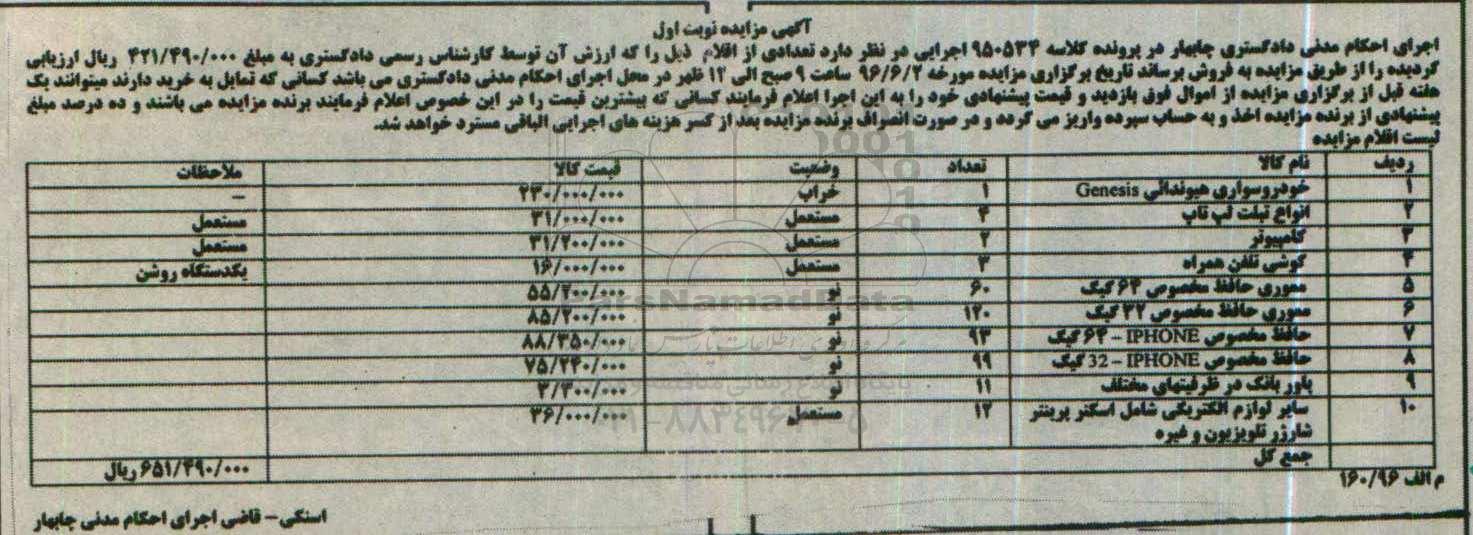 آگهی مزایده نوبت اول
اجرای احکام مدنی دادگستری چابهار در پرونده کلاسه ۹۵۰۵۳۴ اجرایی در نظر دارد تعدادی از اقلام ذیل را که ارزش آن توسط کارشناس رسمی دادگستری به مبلغ ۴۲۱/۴۹۰/۰۰۰ ریال ارزیابی
گردیده را از طریق مزایده به فروش برساند تاریخ برگزاری مزایده مورخه ۹۶/۶/۲ ساعت ۹ صبح الی ۱۲ ظهر در محل اجرای احکام مدنی دادگستری می باشد کسانی که تمایل به خرید دارند میتوانند یک
هفته قبل از برگزاری مزایده از اموال فوق بازدید و قیمت پیشنهادی خود را به این اجرا اعلام فرمایند کسانی که بیشترین قیمت را در این خصوص اعلام فرمایند برنده مزایده می باشند و ده درصد مبلغ
پیشنهادی از برنده مزایده اخذ و به حساب سپرده واریز می گردد و در صورت انصراف برنده مزایده بعد از کسر هزینه های اجرایی الباقی مسترد خواهد شد.
لیست اقلام مزایده
ردیف نام کالا تعداد وضعیت قیمت کالا ملاحظات
۱ خودروسواری هیوندائی Genesis ۱ خراب ۲۳۰/۰۰۰/۰۰۰ –
۲ انواع تبلت لپ تاپ ۴ مستعمل ۳۱/۰۰۰/۰۰۰ مستعمل
۳ کامپیوتر ۲ مستعمل ۳۱/۲۰۰/۰۰۰ مستعمل
۴ گوشی تلفن همراه ۳ مستعمل ۱۶/۰۰۰/۰۰۰ یکدستگاه روشن
۵ مموری حافظ مخصوص ۶۴ گیگ ۶۰ نو ۵۵/۲۰۰/۰۰۰
۶ مموری حافظ مخصوص ۳۲ گیگ ۱۲۰ نو ۸۵/۲۰۰/۰۰۰
۷ حافظ مخصوص IPHONE – ۶۴ گیگ ۹۳ نو ۸۸/۳۵۰/۰۰۰
۸ حافظ مخصوص IPHONE – 32 گیگ ۹۹ نو ۷۵/۲۴۰/۰۰۰
۹ پاور بانک در ظرفیتهای مختلف ۱۱ نو ۳/۳۰۰/۰۰۰
۱۰ سایر لوازم الکتریکی شامل اسکنر پرینتر ۱۲ مستعمل ۳۶/۰۰۰/۰۰۰
شارژر تلویزیون و غیره
جمع کل ۶۵۱/۴۹۰/۰۰۰ ریال
م الف ۱۶۰/۹۶
اسنکی – قاضی اجرای احکام مدنی چابهار
ParsNamadData